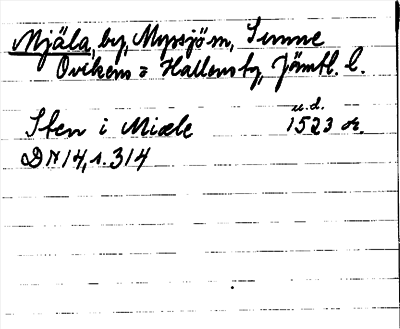 Mjäla, by, Myssjö sn, Sunne
Ovikens o Hallens tg, Jämtl. l.
Sten i Miæle
u.d.
1523 or.
DN 14, s. 314